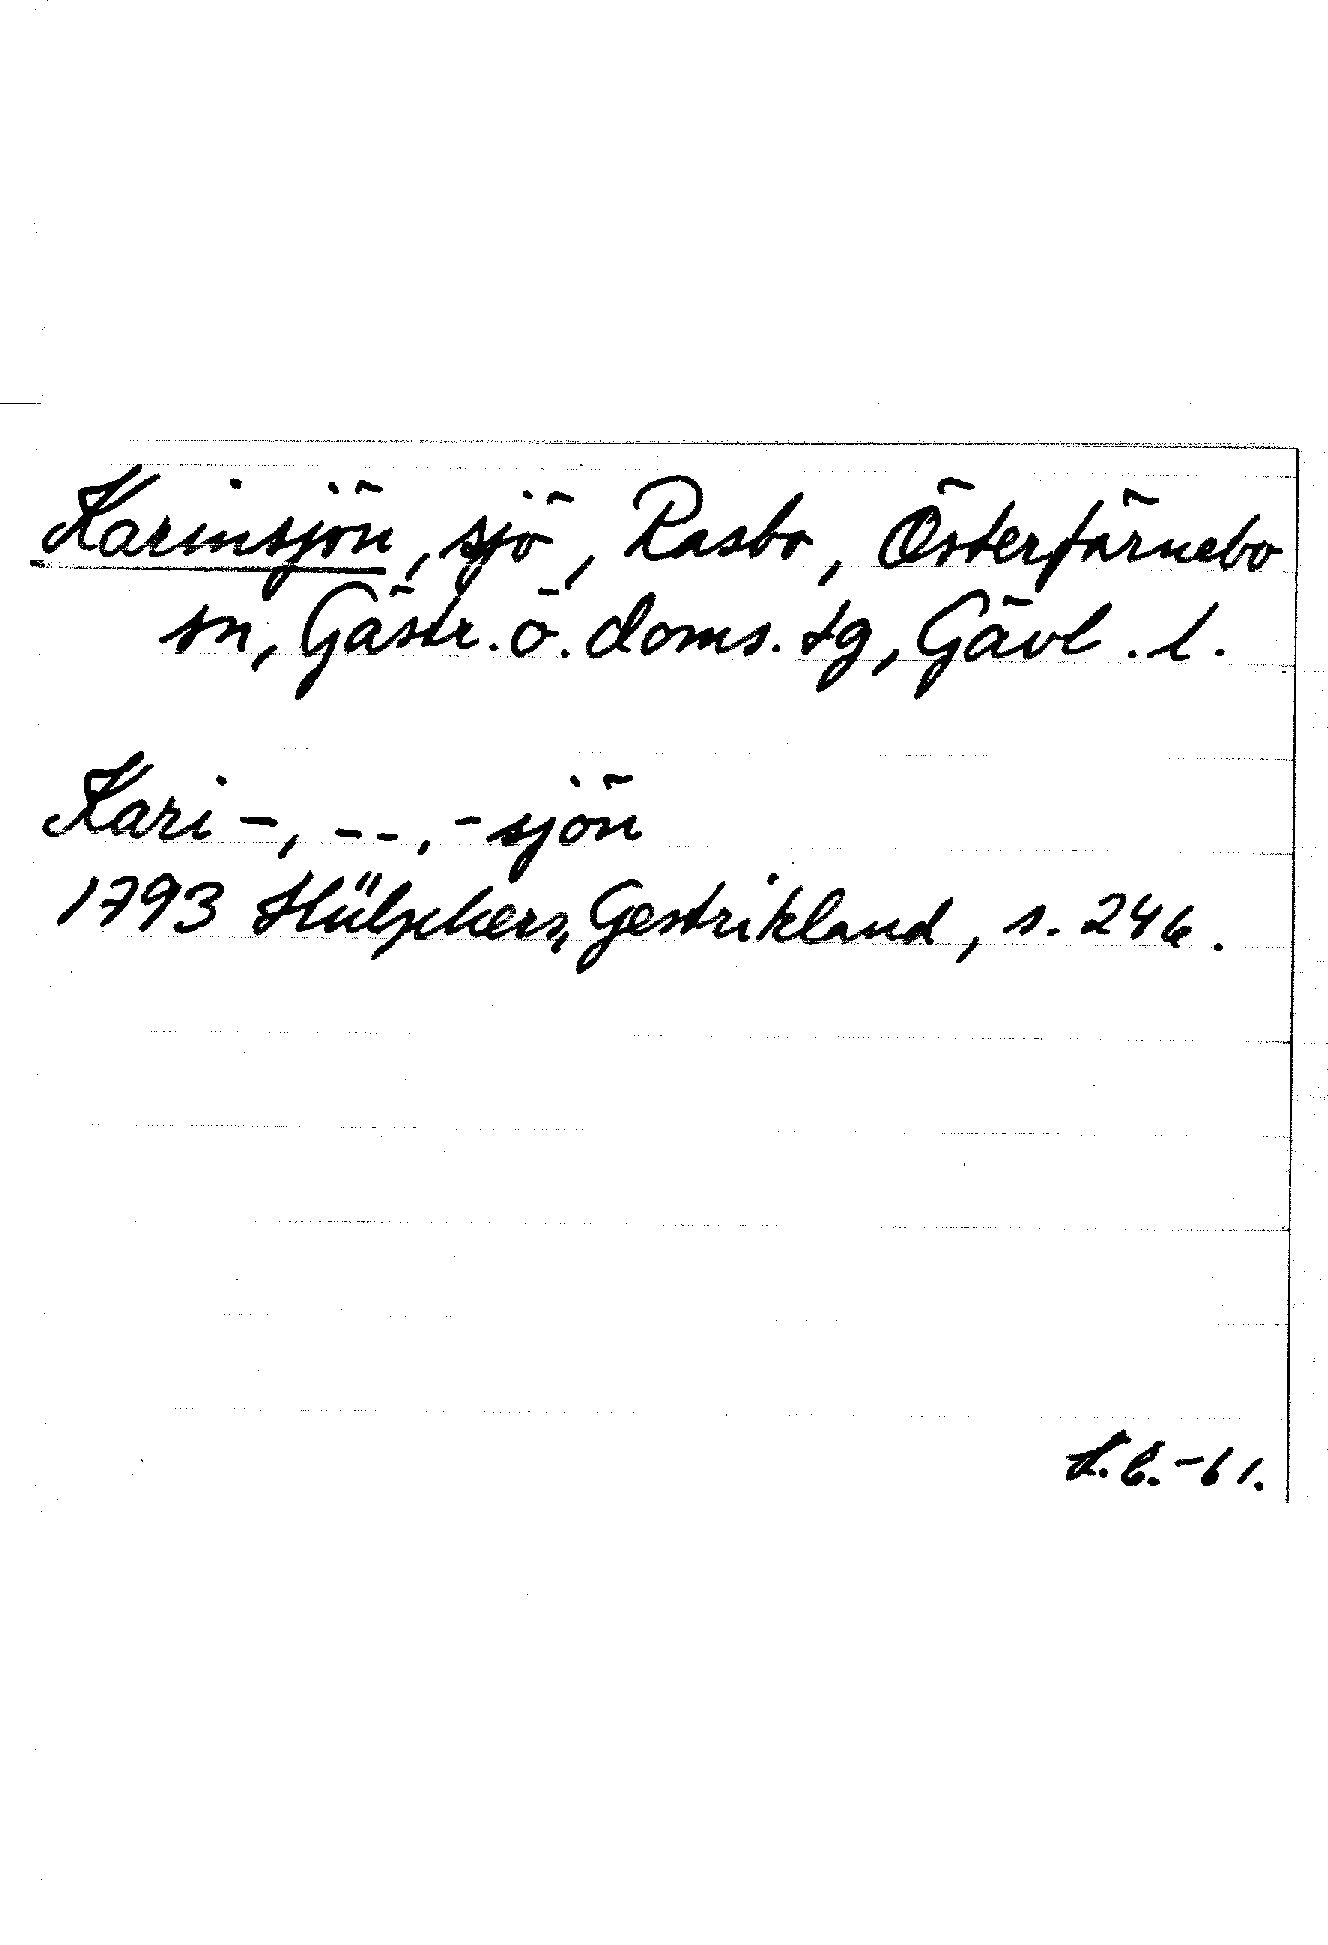 Karinsjön, sjö, Rasbo, Österfärnebo
sn, Gästr. ö. doms. tg, Gävl. l.
Kari-, --, -sjön
1793 Hülphers, Gestrikland, s. 246.
-61.